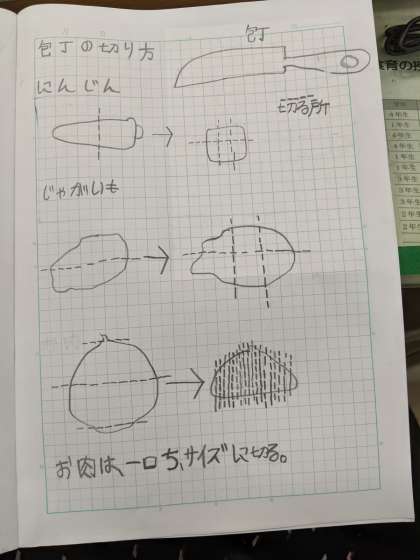 包丁の切り方
包丁
にんじん
切る所
じゃがいも
お肉は、一口ち、サイズに切る。
4年生
1年生
4年生
4年生
1年生
1年生
3年生
3年生
3年生
2年生
2年生